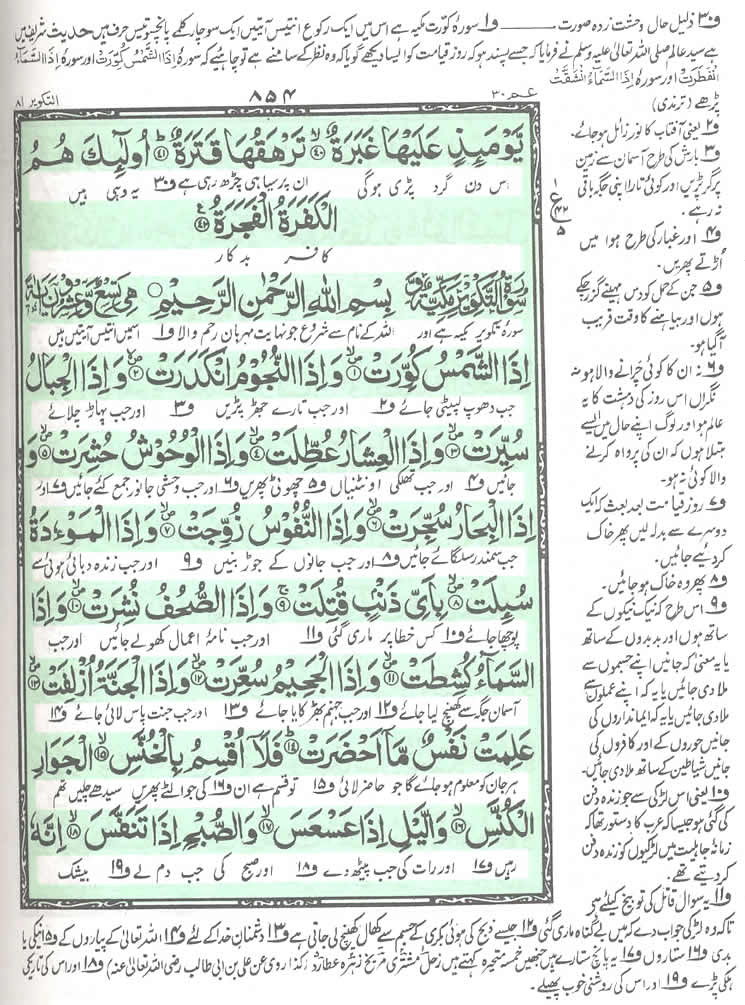 ف۳۰ ذلیل حال وحشت زدہ صورت ــــــــ ف۱ سورۂ کورت مکیہ ہے اس میں ایک رکوع انتیس آیتیں ایک سو چار کلمے پانچسو تیس حرف ہیں حدیث شریف میں
ہے سید عالم صلی اللہ تعالیٰ علیہ وسلم نے فرمایا کہ جسے پسند ہو کہ روز قیامت کو ایسا دیکھے گویا کہ وہ نظر کے سامنے ہے تو چاہئے کہ سورہ اِذَا الشَّمْسُ كُوِّرَتْ اور سورہ اِذَا السَّمَآءُ
انْفَطَرَتْ اور سورہ اِذَا السَّمَآءُ انْشَقَّتْ
پڑھے (ترمذی)
عــم ۳۰
۸۵۴
التکویر ۸۱
يَوْمَئِذٍ عَلَيْهَا غَبَرَةٌ ﴿۴۰﴾ تَرْهَقُهَا قَتَرَةٌ ﴿۴۱﴾ اُولٰٓئِكَ هُمُ
اس دن گرد پڑی ہوگی ان پر سیاہی چڑھ رہی ہے ف۳۰ یہ وہی ہیں
الْكَفَرَةُ الْفَجَرَةُ ﴿۴۲﴾
کافر بدکار
سُوْرَةُ التَّكْوِيْرِ مَكِّيَّةٌ وَّ بِسْمِ اللّٰهِ الرَّحْمٰنِ الرَّحِيْمِ هِيَ تِسْعٌ وَّعِشْرُوْنَ اٰيَةً
سورۂ تکویر مکیہ ہے اور اللہ کے نام سے شروع جو نہایت مہربان رحم والا ف۱ اسمیں انتیس آیتیں ہیں
اِذَا الشَّمْسُ كُوِّرَتْ ﴿۱﴾ وَاِذَا النُّجُوْمُ انْكَدَرَتْ ﴿۲﴾ وَاِذَا الْجِبَالُ
جب دھوپ لپیٹی جائے ف۲ اور جب تارے جھڑ پڑیں ف۳ اور جب پہاڑ چلائے
سُيِّرَتْ ﴿۳﴾ وَاِذَا الْعِشَارُ عُطِّلَتْ ﴿۴﴾ وَاِذَا الْوُحُوْشُ حُشِرَتْ ﴿۵﴾ وَ
جائیں ف۴ اور جب تھلکی اونٹنیاں ف۵ چھوٹی پھریں ف۶ اور جب وحشی جانور جمع کئے جائیں ف۷ اور
اِذَا الْبِحَارُ سُجِّرَتْ ﴿۶﴾ وَاِذَا النُّفُوْسُ زُوِّجَتْ ﴿۷﴾ وَاِذَا الْمَوْءٗدَةُ
جب سمندر سلگائے جائیں ف۸ اور جب جانوں کے جوڑ بنیں ف۹ اور جب زندہ دبائی ہوئی سے
سُئِلَتْ ﴿۸﴾ بِاَيِّ ذَنْۢبٍ قُتِلَتْ ﴿۹﴾ وَاِذَا الصُّحُفُ نُشِرَتْ ﴿۱۰﴾ وَاِذَا
پوچھا جائے ف۱۰ کس خطا پر ماری گئی ف۱۱ اور جب نامۂ اعمال کھولے جائیں اور جب
السَّمَآءُ كُشِطَتْ ﴿۱۱﴾ وَاِذَا الْجَحِيْمُ سُعِّرَتْ ﴿۱۲﴾ وَاِذَا الْجَنَّةُ اُزْلِفَتْ ﴿۱۳﴾
آسمان جگہ سے کھینچ لیا جائے ف۱۲ اور جب جہنم بھڑکایا جائے ف۱۳ اور جب جنت پاس لائی جائے ف۱۴
عَلِمَتْ نَفْسٌ مَّاۤ اَحْضَرَتْ ﴿۱۴﴾ فَلَاۤ اُقْسِمُ بِالْخُنَّسِ ﴿۱۵﴾ الْجَوَارِ
ہر جان کو معلوم ہو جائے گا جو حاضر لائی ف۱۵ تو قسم ہے ان ف۱۶ کی جو الٹے پھریں سیدھے چلیں تھم
الْكُنَّسِ ﴿۱۶﴾ وَالَّيْلِ اِذَا عَسْعَسَ ﴿۱۷﴾ وَالصُّبْحِ اِذَا تَنَفَّسَ ﴿۱۸﴾ اِنَّهٗ
رہیں ف۱۷ اور رات کی جب پیٹھ دے ف۱۸ اور صبح کی جب دم لے ف۱۹ بیشک
ف۲ یعنی آفتاب کا نور زائل ہوجائے۔
ف۳ بارش کی طرح آسمان سے زمین
پر گر پڑیں اور کوئی تارا اپنی جگہ باقی
نہ رہے۔
ف۴ اور غبار کی طرح ہوا میں
اُڑتے پھریں۔
ف۵ جن کے حمل کو دس مہینے گزر چکے
ہوں اور بیاہنے کا وقت قریب
آگیا ہو۔
ف۶: ان کا کوئی چَرانے والا ہو نہ
نگراں اس روز کی دہشت کا یہ
عالم ہو اور لوگ اپنے حال میں ایسے
مبتلا ہوں کہ ان کی پرواہ کرنے
والا کوئی نہ ہو۔
ف۷ روز قیامت بعد بعث کہ ایک
دوسرے سے بدلہ لیں پھر خاک
کردیے جائیں۔
ف۸ پھر وہ خاک ہوجائیں۔
ف۹ اس طرح کہ نیک نیکوں کے
ساتھ ہوں اور بد بدوں کے ساتھ
یا یہ معنی کہ جانیں اپنے جسموں سے
ملا دی جائیں یا یہ کہ اپنے عملوں سے
ملا دی جائیں یا یہ کہ ایمانداروں کی
جانیں حوروں کے اور کافروں کی
جانیں شیاطین کے ساتھ ملا دی جائیں۔
ف۱۰ یعنی اس لڑکی سے جو زندہ دفن
کی گئی ہو جیسا کہ عرب کا دستور تھا کہ
زمانۂ جاہلیت میں لڑکیوں کو زندہ دفن
کردیتے تھے۔
ف۱۱ یہ سوال قاتل کی توبیخ کیلئے ہے
تاکہ وہ لڑکی جواب دے کہ میں بے گناہ ماری گئی ف۱۲ جیسے ذبح کی ہوئی بکری کے جسم سے کھال کھینچ لی جاتی ہے ف۱۳ دشمنانِ خدا کے لئے ف۱۴ اللہ تعالیٰ کے پیاروں کے ف۱۵ نیکی یا
بدی ف۱۶ ستاروں ف۱۷ یہ پانچ ستارے ہیں جنھیں خمسہ متحیرہ کہتے ہیں زحل مشتری مریخ زہرہ عطارد (کذا روی عن علی بن ابی طالب رضی اللہ تعالیٰ عنہ) ف۱۸ اور اس کی تاریکی
ہلکی پڑے ف۱۹ اور اس کی روشنی خوب پھیلے۔